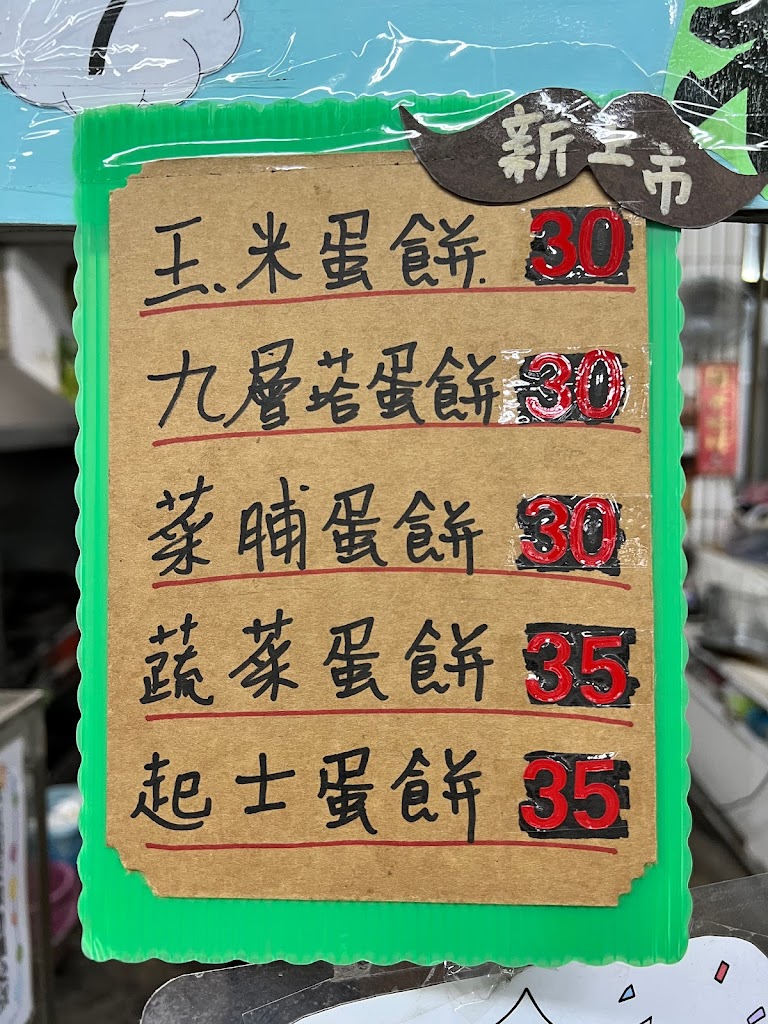 新上市
玉米蛋餅 30
九層塔蛋餅 30
菜哺蛋餅 30
蔬菜蛋餅 35
起士蛋餅 35